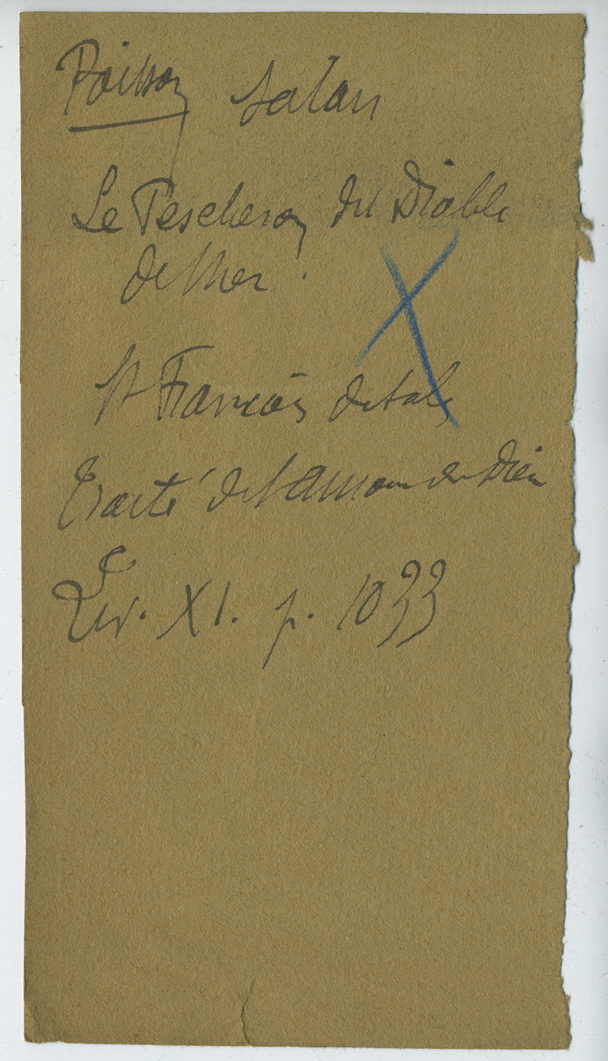 Poisson Satan
Le Pescheron dit Diable
de Mer.
St François de Sales
Traité de l'amour de Dieu
Liv. XI. p. 1033